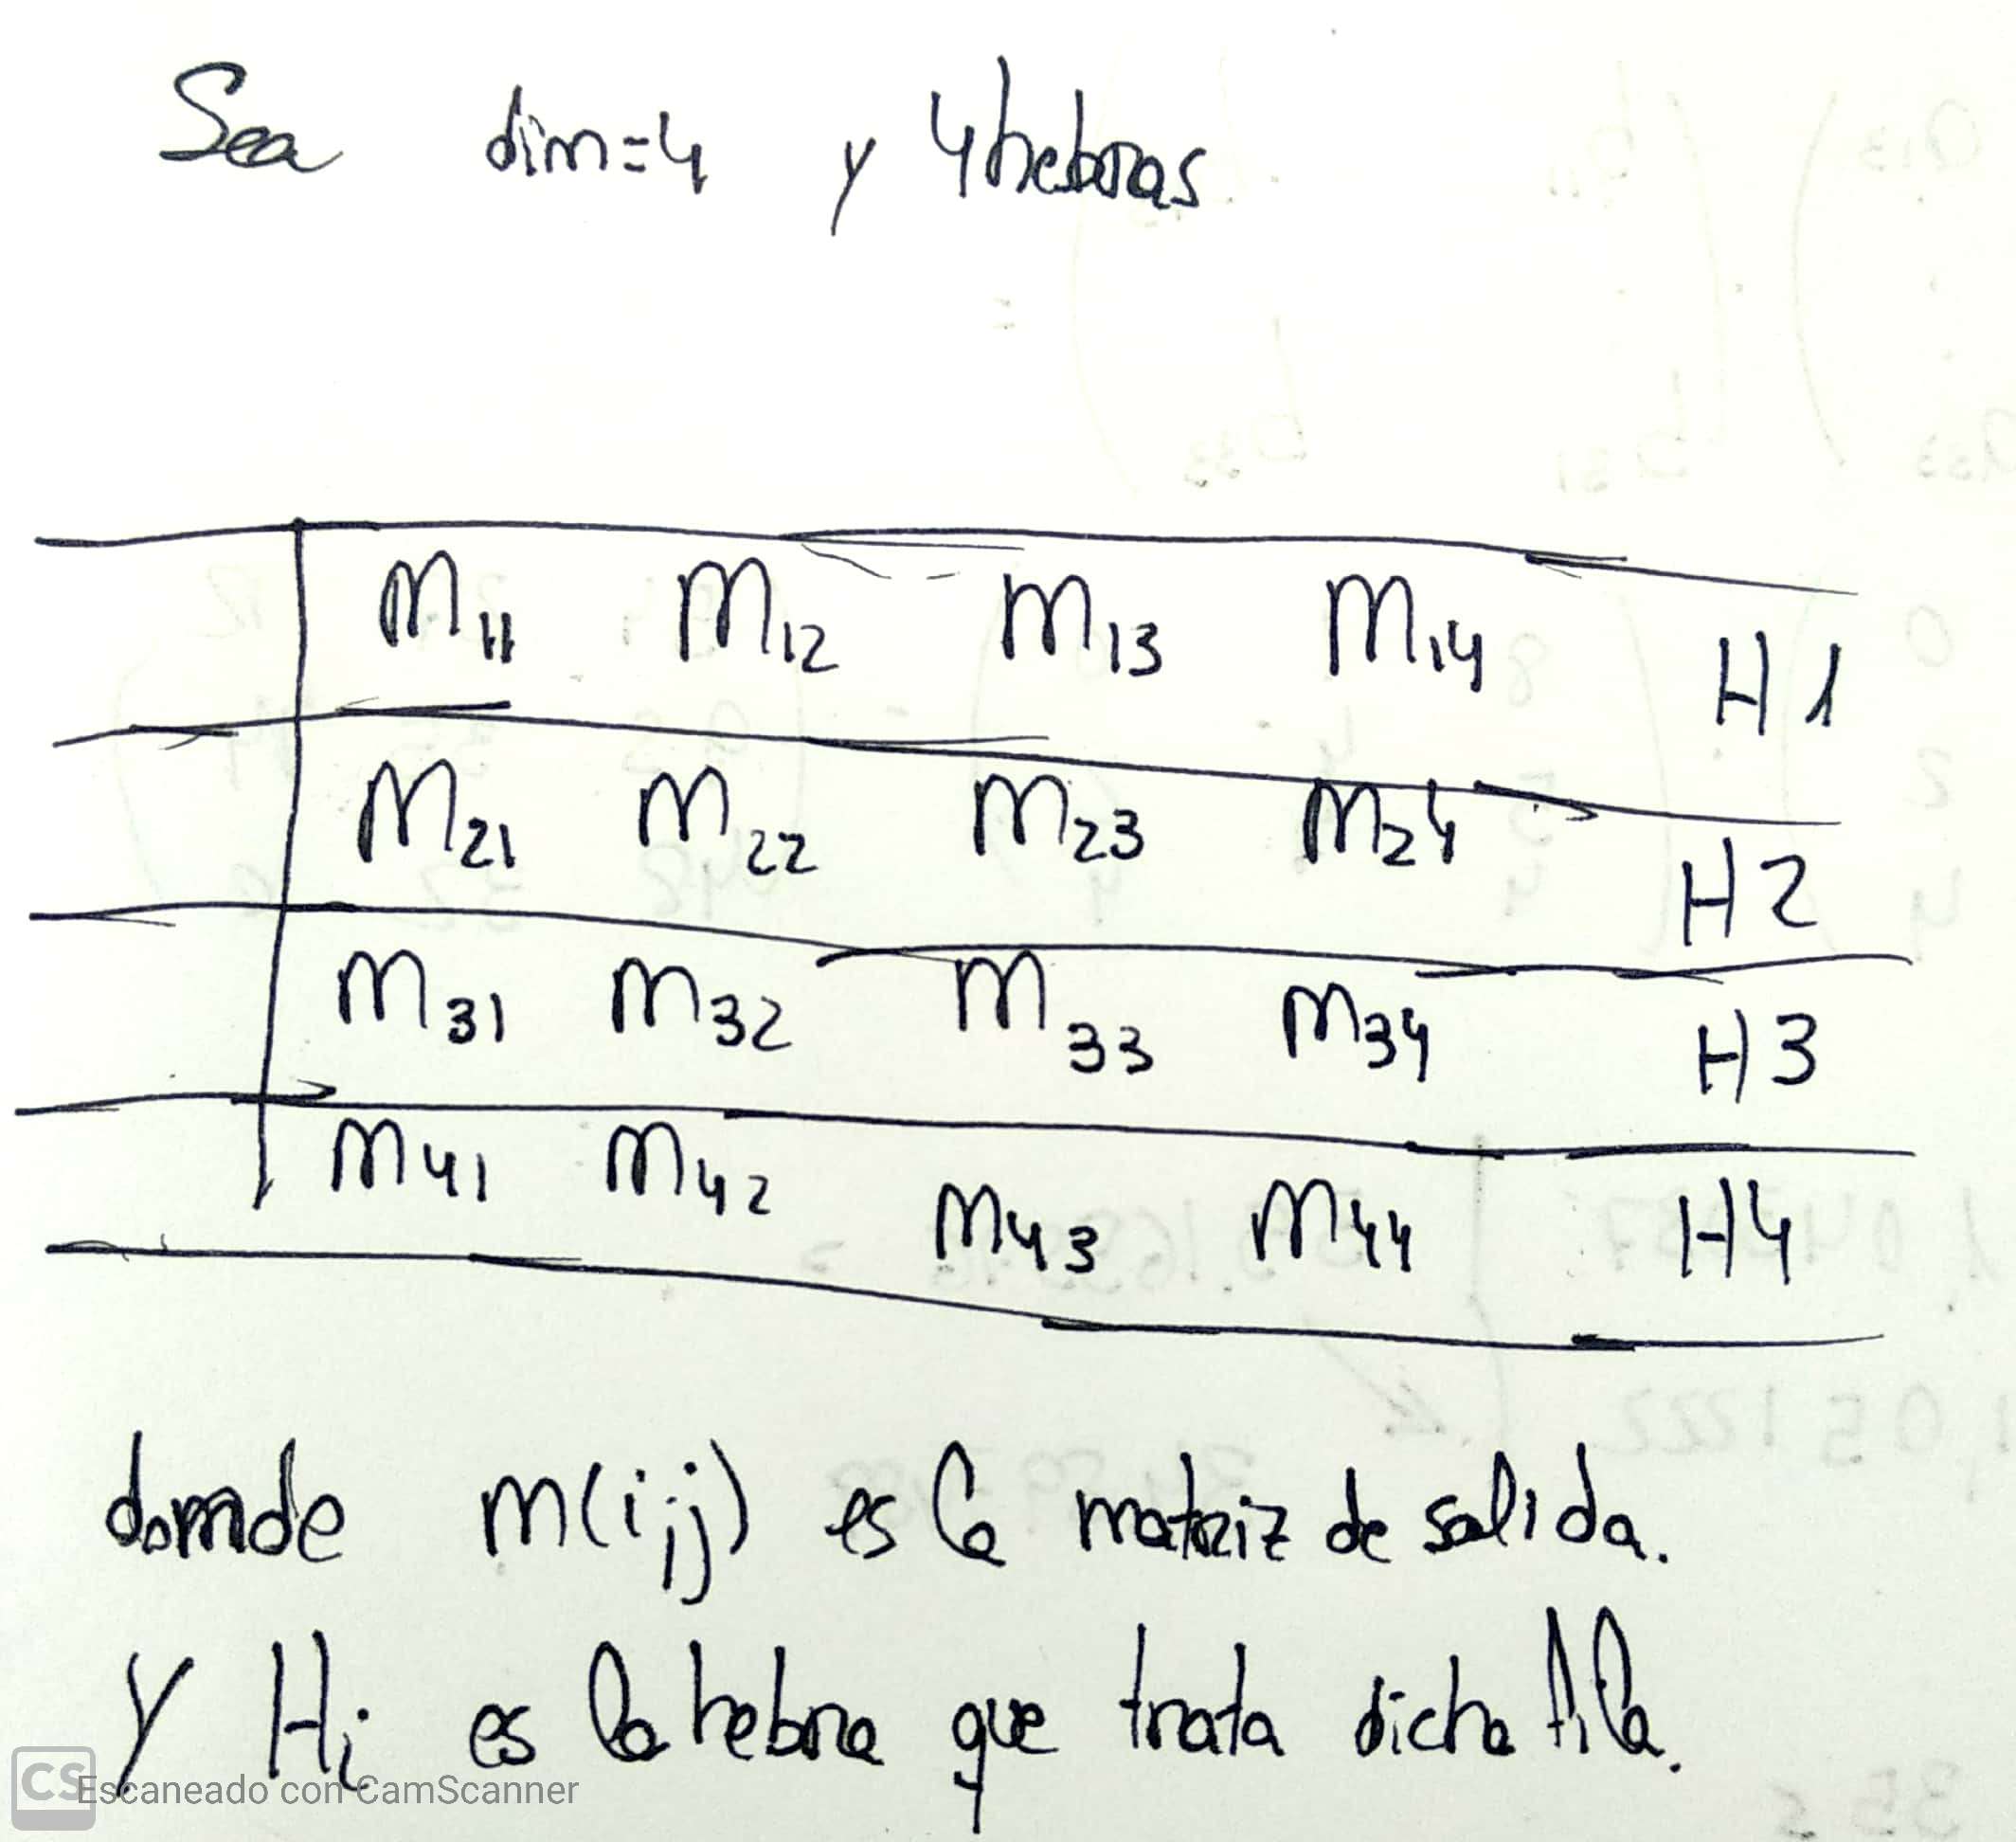 Sea dim=4 y 4 hebras
M11 M12 M13 M14 H1
M21 M22 M23 M24 H2
M31 M32 M33 M34 H3
M41 M42 M43 M44 H4
donde m(i,j) es la matriz de salida.
Y Hi es la hebra que trata dicha fila.
CS Escaneado con CamScanner